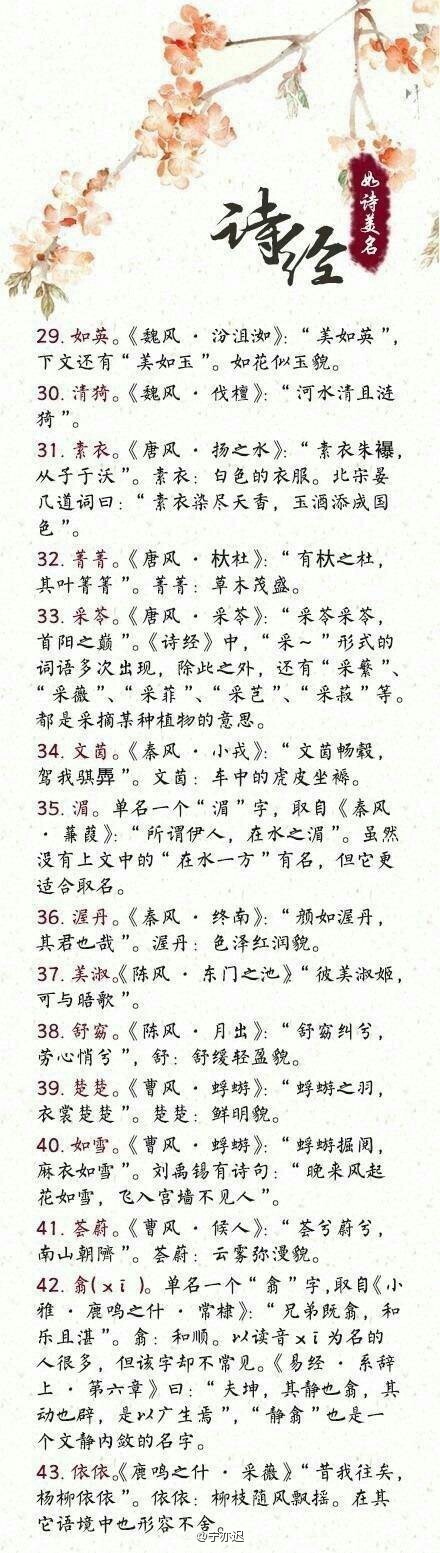 诗经
如诗美名
29. 如英。《魏风 · 汾沮洳》：“美如英”，
下文还有“美如玉”。如花似玉貌。
30. 清猗。《魏风 · 伐檀》：“河水清且涟
猗”。
31. 素衣。《唐风 · 扬之水》：“素衣朱襮，
从子于沃”。素衣：白色的衣服。北宋晏
几道词曰：“素衣染尽天香，玉酒添成国
色”。
32. 菁菁。《唐风 · 杕杜》：“有杕之杜，
其叶菁菁”。菁菁：草木茂盛。
33. 采苓。《唐风 · 采苓》：“采苓采苓，
首阳之巅”。《诗经》中，“采～”形式的
词语多次出现，除此之外，还有“采蘩”、
“采薇”、“采菲”、“采芑”、“采菽”等。
都是采摘某种植物的意思。
34. 文茵。《秦风 · 小戎》：“文茵畅毂，
驾我骐馵”。文茵：车中的虎皮坐褥。
35. 湄。单名一个“湄”字，取自《秦风
· 蒹葭》：“所谓伊人，在水之湄”。虽然
没有上文中的“在水一方”有名，但它更
适合取名。
36. 渥丹。《秦风 · 终南》：“颜如渥丹，
其君也哉”。渥丹：色泽红润貌。
37. 美淑。《陈风 · 东门之池》“彼美淑姬，
可与晤歌”。
38. 舒窈。《陈风 · 月出》：“舒窈纠兮，
劳心悄兮”，舒：舒缓轻盈貌。
39. 楚楚。《曹风 · 蜉蝣》：“蜉蝣之羽，
衣裳楚楚”。楚楚：鲜明貌。
40. 如雪。《曹风 · 蜉蝣》：“蜉蝣掘阅，
麻衣如雪”。刘禹锡有诗句：“晚来风起
花如雪，飞入宫墙不见人”。
41. 荟蔚。《曹风 · 候人》：“荟兮蔚兮，
南山朝隮”。荟蔚：云雾弥漫貌。
42. 翕(xī)。单名一个“翕”字，取自《小
雅 · 鹿鸣之什 · 常棣》：“兄弟既翕，和
乐且湛”。翕：和顺。以读音xī为名的
人很多，但该字却不常见。《易经 · 系辞
上 · 第六章》曰：“夫坤，其静也翕，其
动也辟，是以广生焉”，“静翕”也是一
个文静内敛的名字。
43. 依依。《鹿鸣之什 · 采薇》“昔我往矣，
杨柳依依”。依依：柳枝随风飘摇。在其
它语境中也形容不舍。
@宁亦迟